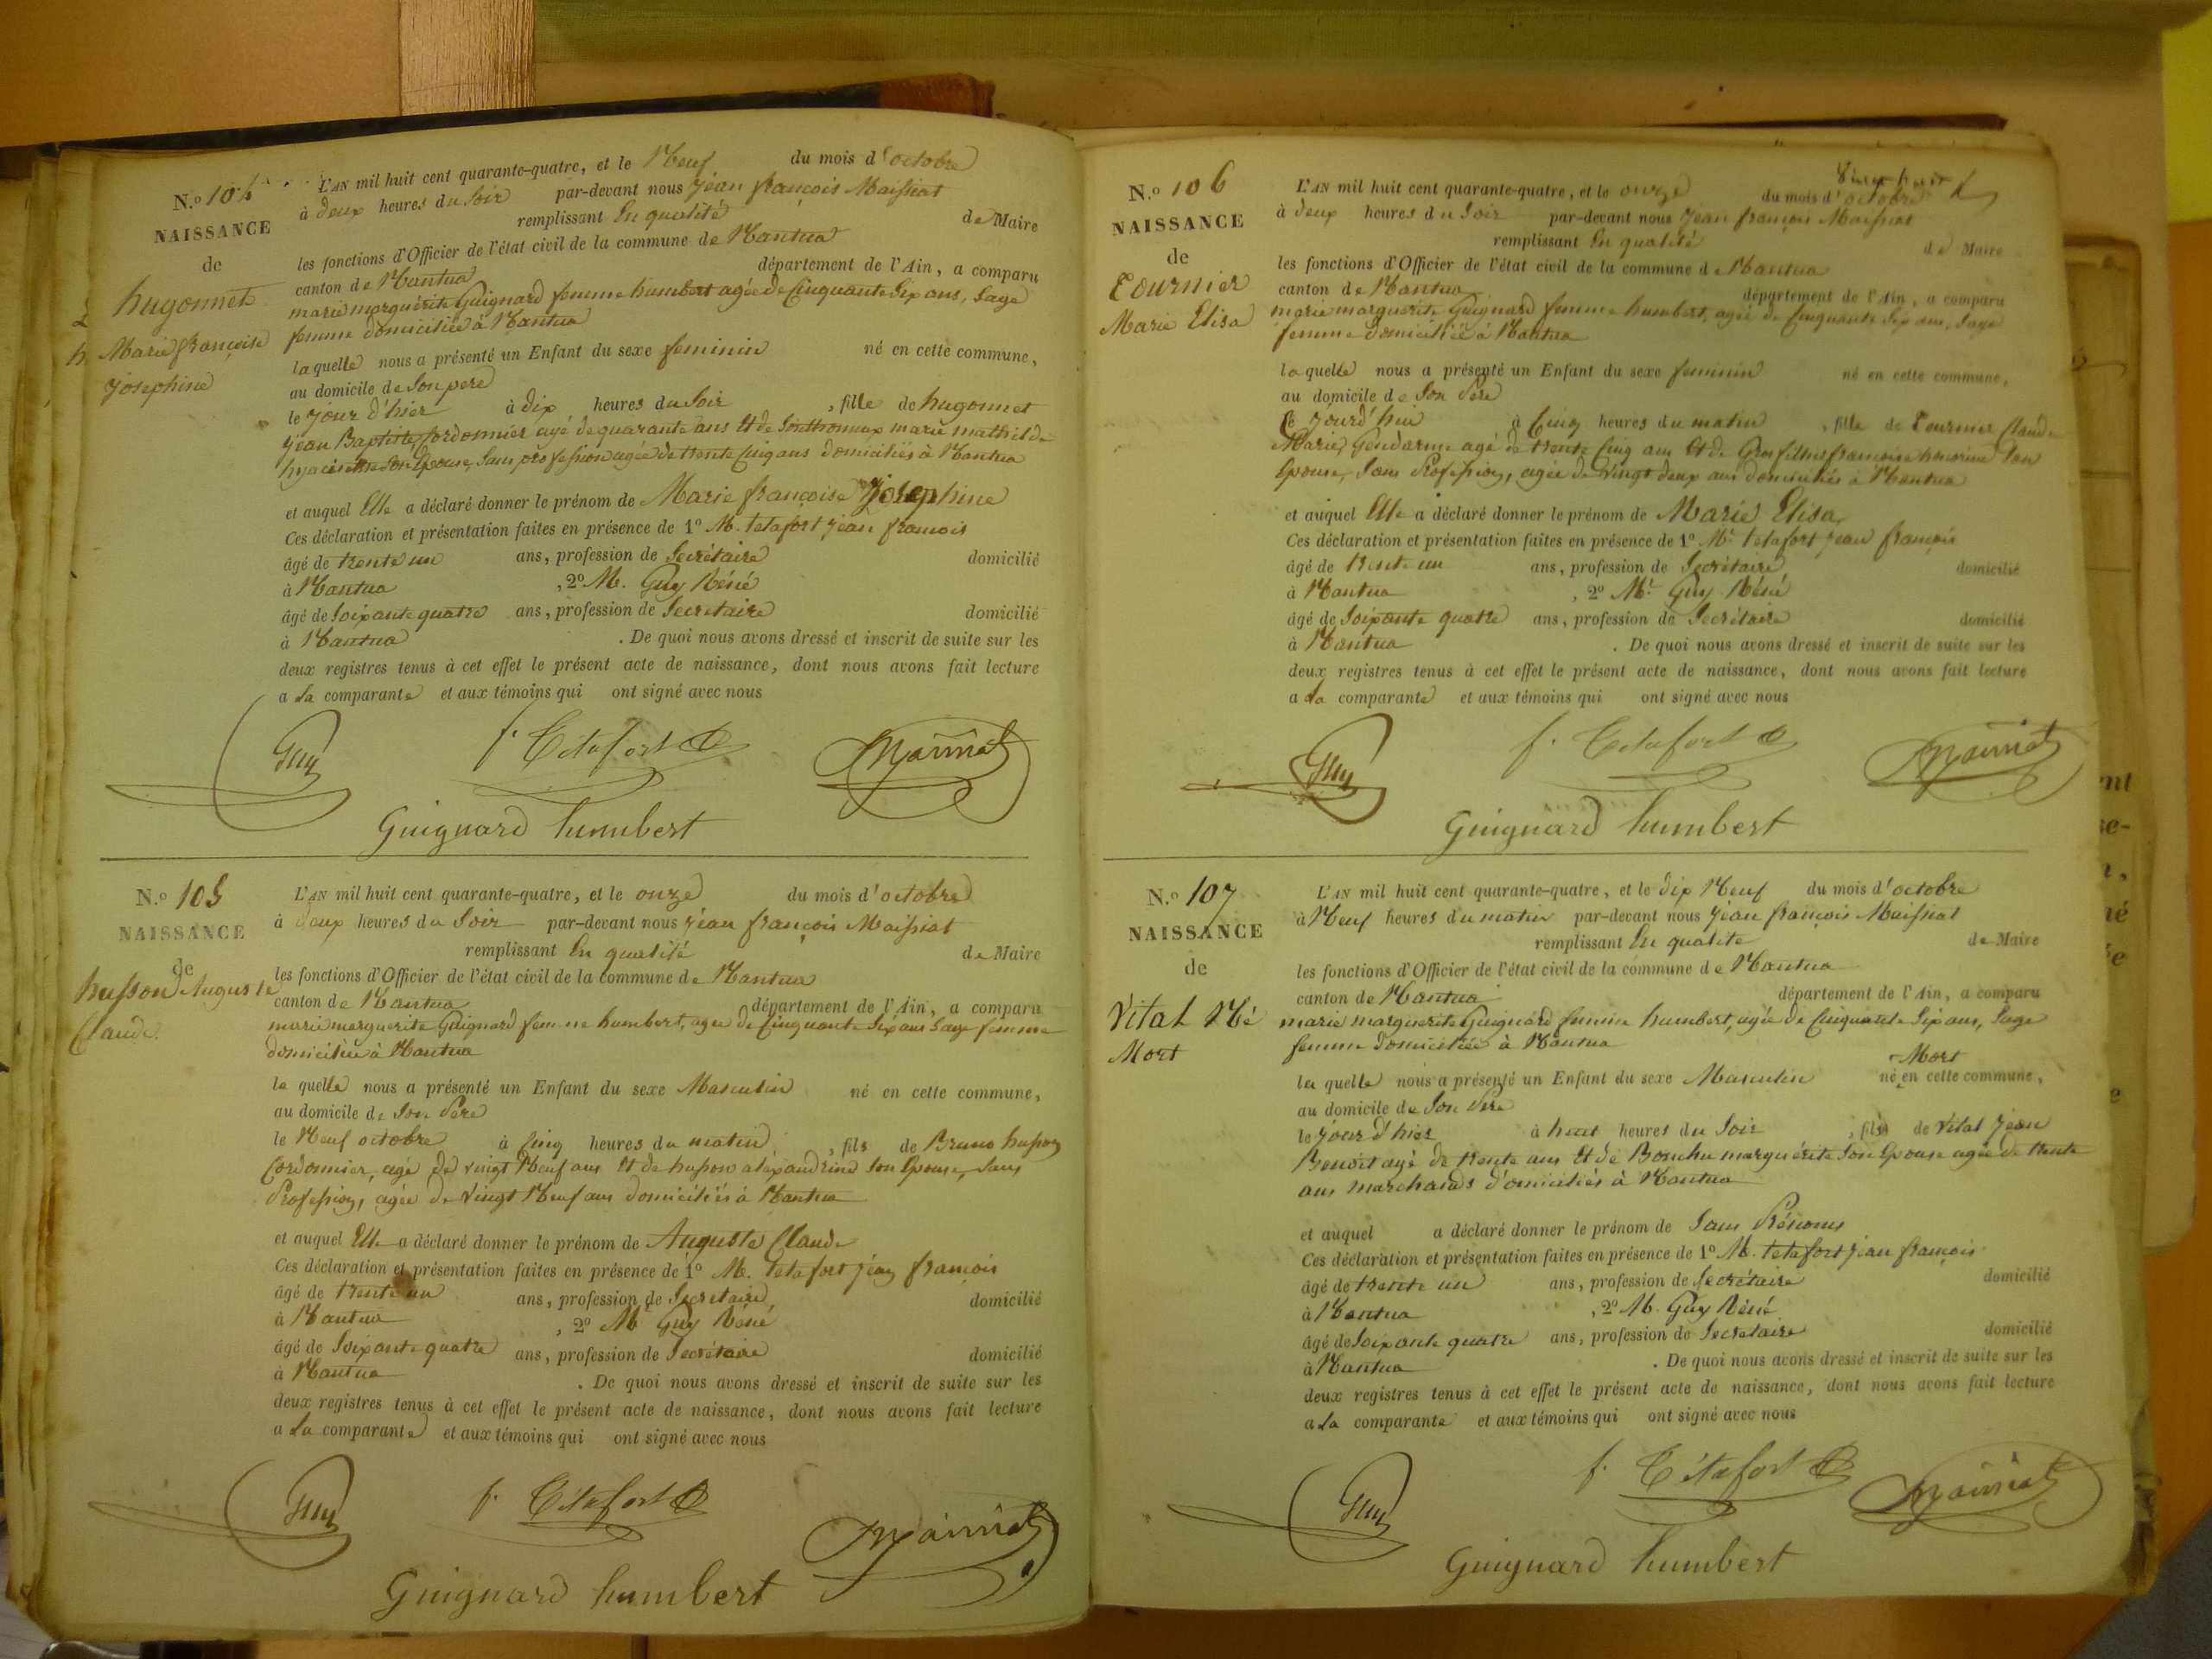 N.o 104
NAISSANCE
de
hugonnet
Marie françoise
Josephine
L'AN mil huit cent quarante-quatre, et le Neuf du mois d'octobre
à deux heures du Soir par-devant nous Jean françois Maissiat
remplissant En qualité de Maire
les fonctions d'Officier de l'état civil de la commune de Nantua
canton de Nantua département de l'Ain, a comparu
marie marguerite Guignard femme humbert agée de Cinquante Six ans, Sage
femme domiciliée à Nantua
laquelle nous a présenté un Enfant du sexe feminin né en cette commune,
au domicile de Son pere
le jour d'hier à dix heures du Soir, fille de hugonnet
Jean Baptiste, Cordonnier agé de quarante ans Et de Sonthonnax marie mathilde
hyacinthe Son Epouse, Sans profession agée de trente Cinq ans domiciliés à Nantua
et auquel Elle a déclaré donner le prénom de Marie françoise Josephine
Ces déclaration et présentation faites en présence de 1o M. tetafort Jean françois
âgé de trente un ans, profession de Secrétaire domicilié
à Nantua, 2o M. Guy Réné
âgé de Soixante quatre ans, profession de Secretaire domicilié
à Nantua. De quoi nous avons dressé et inscrit de suite sur les
deux registres tenus à cet effet le présent acte de naissance, dont nous avons fait lecture
a la comparante et aux témoins qui ont signé avec nous
Guy f. Tétafort Maissiat
Guignard humbert
N.o 105
NAISSANCE
de
husson Auguste
Claude
L'AN mil huit cent quarante-quatre, et le onze du mois d'octobre
à deux heures du Soir par-devant nous Jean françois Maissiat
remplissant En qualité de Maire
les fonctions d'Officier de l'état civil de la commune de Nantua
canton de Nantua département de l'Ain, a comparu
marie marguerite Guignard femme humbert, agée de Cinquante Six ans Sage femme
domiciliée à Nantua
la quelle nous a présenté un Enfant du sexe Masculin né en cette commune,
au domicile de Son Père
le Neuf octobre à Cinq heures du matin, fils de Bruno husson
Cordonnier, agé de vingt Neuf ans Et de husson alexandrine Son Epouse, Sans
Profession, agée de Vingt Neuf ans domiciliés à Nantua
et auquel Elle a déclaré donner le prénom de Auguste Claude
Ces déclaration et présentation faites en présence de 1o M. tetafort Jean françois
âgé de trente un ans, profession de Secretaire domicilié
à Nantua, 2o M. Guy Réné
âgé de Soixante quatre ans, profession de Secrétaire domicilié
à Nantua. De quoi nous avons dressé et inscrit de suite sur les
deux registres tenus à cet effet le présent acte de naissance, dont nous avons fait lecture
a la comparante et aux témoins qui ont signé avec nous
Guy f. Tétafort Maissiat
Guignard humbert
N.o 106
NAISSANCE
de
Tournier
Marie Elisa
L'AN mil huit cent quarante-quatre, et le onze du mois d'octobre
à deux heures du Soir par-devant nous Jean françois Maissiat
remplissant En qualité de Maire
les fonctions d'Officier de l'état civil de la commune de Nantua
canton de Nantua département de l'Ain, a comparu
marie marguerite Guignard femme humbert, agée de Cinquante Six ans, Sage
femme domiciliée à Nantua
laquelle nous a présenté un Enfant du sexe feminin né en cette commune,
au domicile de Son Père
Ce Jourd'hui à Cinq heures du matin, fille de Tournier Claude
Marie, Gendarme agé de trente Cinq ans Et de françoise honorine Son
Epouse, Sans Profession, agée de Vingt deux ans domiciliés à Nantua
et auquel Elle a déclaré donner le prénom de Marie Elisa
Ces déclaration et présentation faites en présence de 1o Mr. tetafort Jean françois
âgé de trente un ans, profession de Secrétaire domicilié
à Nantua, 2o Mr. Guy Réné
âgé de Soixante quatre ans, profession de Secrétaire domicilié
à Nantua. De quoi nous avons dressé et inscrit de suite sur les
deux registres tenus à cet effet le présent acte de naissance, dont nous avons fait lecture
a la comparante et aux témoins qui ont signé avec nous
Guy f. Tétafort Maissiat
Guignard humbert
N.o 107
NAISSANCE
de
Vital Né
Mort
L'AN mil huit cent quarante-quatre, et le dix Neuf du mois d'octobre
à Neuf heures du matin par-devant nous Jean françois Maissiat
remplissant En qualite de Maire
les fonctions d'Officier de l'état civil de la commune de Nantua
canton de Nantua département de l'Ain, a comparu
marie marguerite Guignard femme humbert, agée de Cinquante Six ans, Sage
femme domiciliée à Nantua
Mort
la quelle nous a présenté un Enfant du sexe Masculin né en cette commune,
au domicile de Son Père
le jour d'hier à huit heures du Soir, fils de Vital Jean
Benoit agé de trente ans Et de Bouchu marguérite Son Epouse agée de trente
ans marchands domiciliés à Nantua
et auquel a déclaré donner le prénom de Sans Prénoms
Ces déclaration et présentation faites en présence de 1o M. tetafort Jean françois
âgé de trente un ans, profession de Secrétaire domicilié
à Nantua, 2o M. Guy Réné
âgé de Soixante quatre ans, profession de Secretaire domicilié
à Nantua. De quoi nous avons dressé et inscrit de suite sur les
deux registres tenus à cet effet le présent acte de naissance, dont nous avons fait lecture
a la comparante et aux témoins qui ont signé avec nous
Guy f. Tétafort Maissiat
Guignard humbert